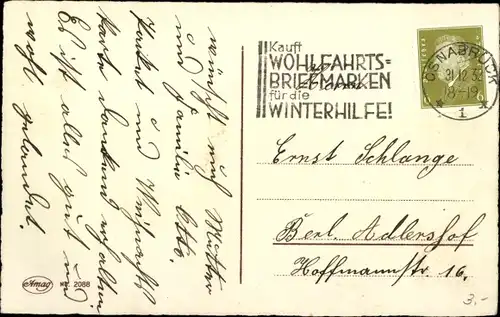 Kauft
WOHLFAHRTS=
BRIEFMARKEN
für die
WINTERHILFE!
OSNABRÜCK
31.12.32
18-19
1
6 6
Herrn
Ernst Schlange
Berl. Adlershof
Hoffmannstr. 16.
3.-
wünscht euch Mutter
und Familie Otto.
Packet und Weihnachts
karte dankend erhalten
Es ist alles gut und
wohl gelandet.
Amag
Nr. 2088